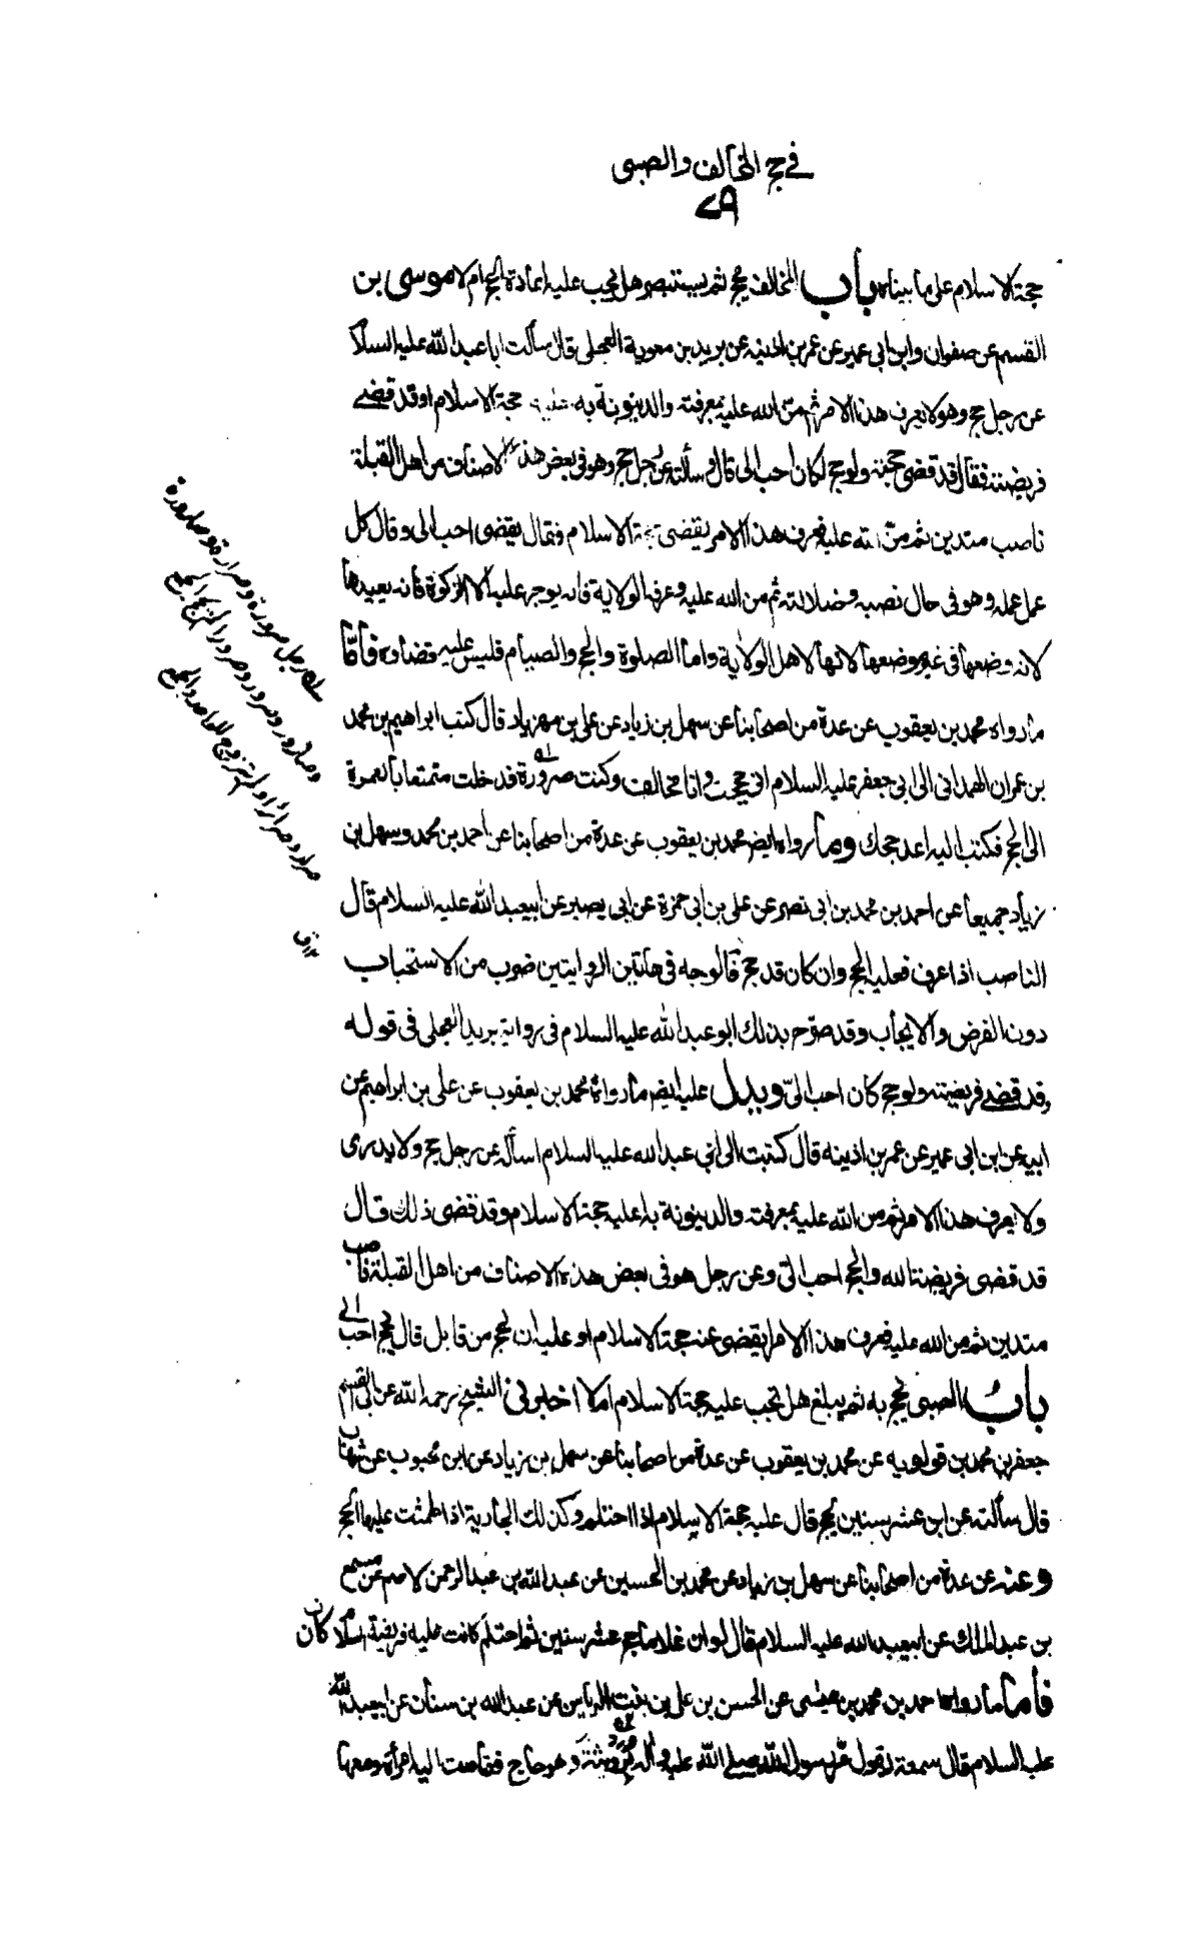 في حج المخالف والصبي
٧٩
حجة الاسلام على ما بيناه باب المخالف يحج ثم يستبصر هل يجب عليه اعادة الحج ام لا موسى بن
القسم عن صفوان وابن ابى عمير عن عمر بن اذينه عن بريد بن معوية العجلى قال سألت ابا عبد الله عليه السلام
عن رجل حج وهو لا يعرف هذا الامر ثم منّ الله عليه بمعرفته والدينونة به حجة الاسلام او قد قضى
فريضته فقال قد قضى حجته ولو حج لكان احب الى قال وسألته عن رجل حج وهو في بعض هذه الاصناف من اهل القبلة
ناصب متدين ثم منّ الله عليه فعرف هذا الامر يقضى حجة الاسلام فقال يقضى احب الى وقال كل
عمل عمله وهو في حال نصبه وضلالته ثم من الله عليه وعرفه الولاية فانه يوجر عليه الا الزكوة فانه يعيدها
لانه وضعها في غير موضعها لانها لاهل الولاية واما الصلوة والحج والصيام فليس عليه قضاؤه فأمّا
ما رواه محمد بن يعقوب عن عدة من اصحابنا عن سهل بن زياد عن على بن مهزيار قال كتب ابراهيم بن محمد
بن عمران الهمدانى الى ابى جعفر عليه السلام انى حججت وانا مخالف وكنت صرورة قد خلت متمتعا بالعمرة
الى الحج فكتب اليه اعد حجك وما رواه ايضا محمد بن يعقوب عن عدة من اصحابنا عن احمد بن محمد وسهل بن
زياد جميعا عن احمد بن محمد بن ابى نصر عن على بن ابى حمزة عن ابى بصير عن ابيعبد الله عليه السلام قال
الناصب اذا عرف فعليه الحج وان كان قد حج فالوجه في هاتين الروايتين ضرب من الاستحباب
دون الفرض والايجاب وقد صرّح بذلك ابو عبد الله عليه السلام في رواية بريد العجلى في قوله
وقد قضى فريضته ولو حج كان احب الىّ ويدل عليه ايضا ما رواه محمد بن يعقوب عن على بن ابراهيم عن
ابيه عن ابن ابى عمير عن عمر بن اذينه قال كتبت الى ابي عبد الله عليه السلام اسأله عن رجل حج ولا يدرى
ولا يعرف هذا الامر ثم من الله عليه بمعرفته والدينونة به اعليه حجة الاسلام وقد قضى ذلك قال
قد قضى فريضة الله والحج احب الىّ وعن رجل هو في بعض هذه الاصناف من اهل القبلة ناصب
متدين ثم من الله عليه فعرف هذا الامر ايقضى عنه حجة الاسلام او عليه ان يحج من قابل قال يحج احب الى
باب الصبى يحج به ثم يبلغ هل تجب عليه حجة الاسلام ام لا اخبرنى الشيخ رحمه الله عن ابى القسم
جعفر بن محمد بن قولويه عن محمد بن يعقوب عن عدة من اصحابنا عن سهل بن زياد عن ابن محبوب عن شهاب
قال سألته عن ابن عشر سنين يحج قال عليه حجة الاسلام اذا احتلم وكذلك الجارية اذا طمثت عليها الحج
وعنه عن عدة من اصحابنا عن سهل بن زياد عن محمد بن الحسين عن عبد الله بن عبد الرحمن الاصم عن مسمع
بن عبد الملك عن ابيعبد الله عليه السلام قال لو ان غلاما حج عشر سنين ثم احتلم كانت عليه فريضة الاسلام
فأما ما رواه احمد بن محمد بن عيسى عن الحسن بن على بن بنت الياس عن عبد الله بن سنان عن ابيعبد الله
عليه السلام قال سمعته يقول مرّ رسول الله صلى الله عليه وآله برويثة وهو حاج فقامت اليه امرأة ومعها
رجل صرورة وصرارة وصارورة
وصارور وصرور